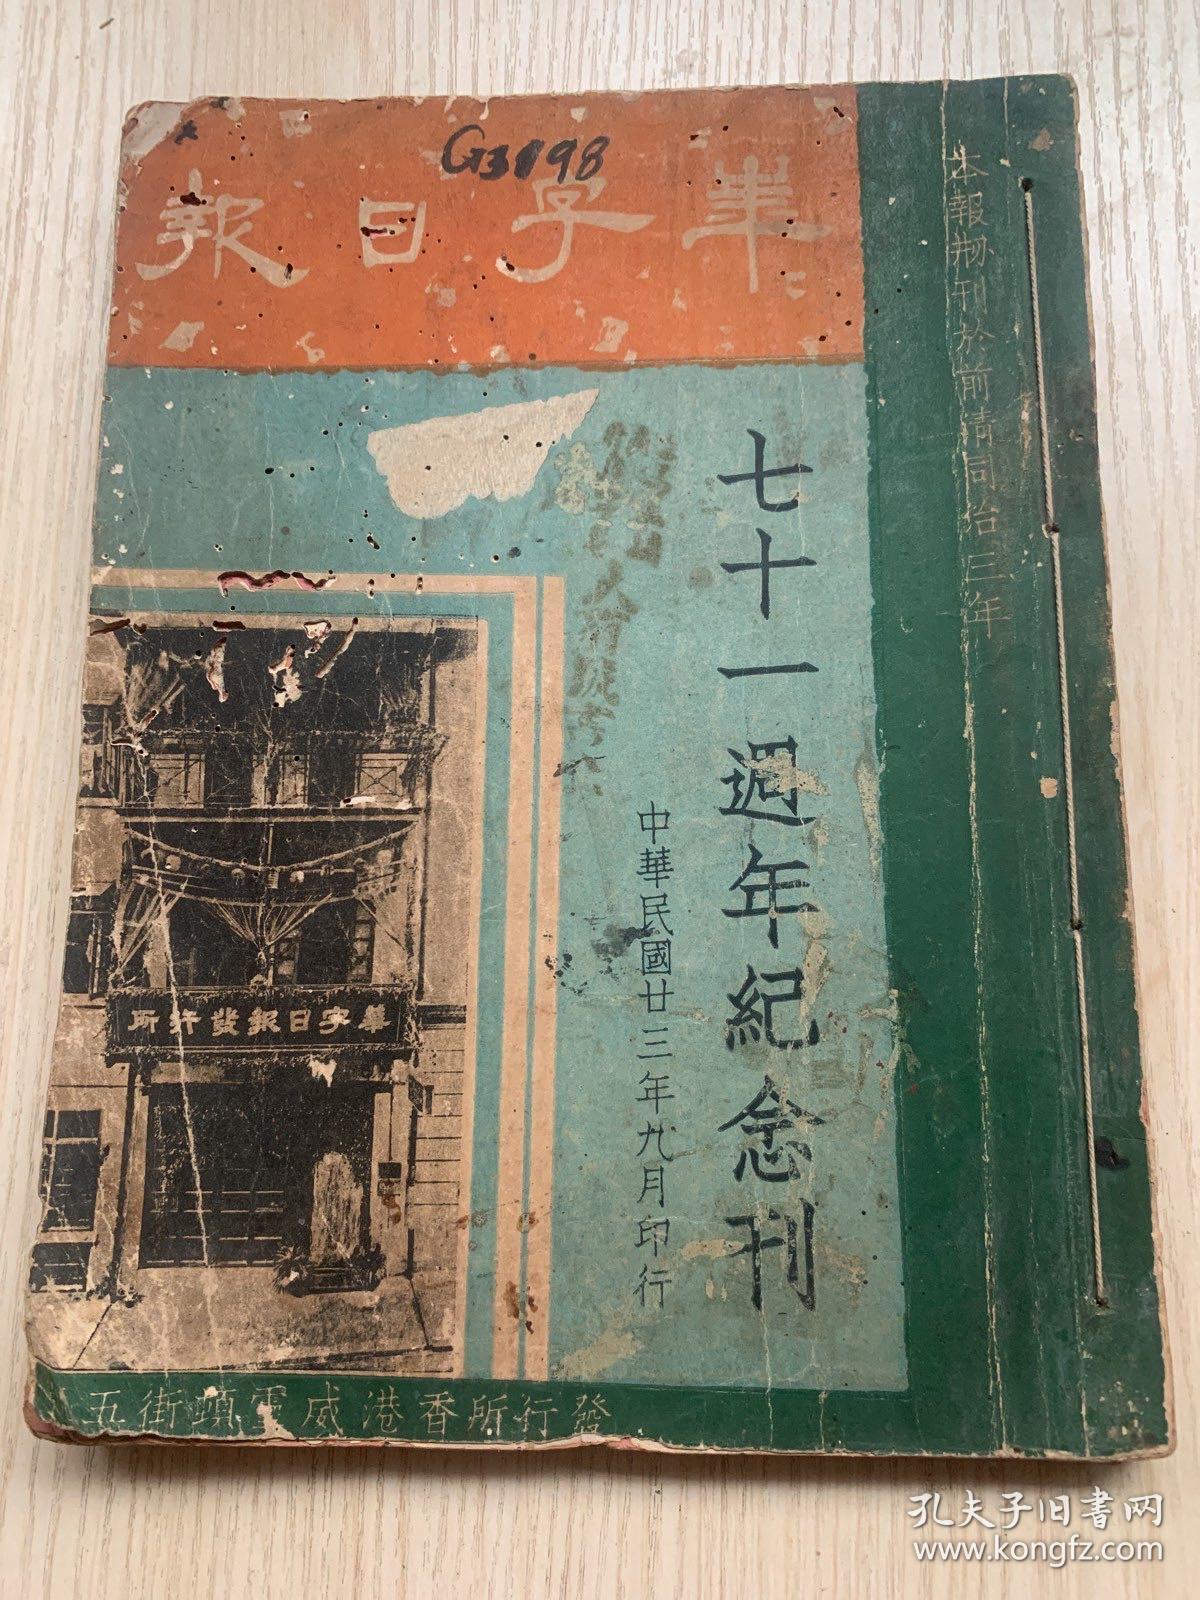 G3198
華字日報
本報刱刊於前清同治三年
七十一週年紀念刊
中華民國廿三年九月印行
華字日報發行所
發行所香港威靈頓街五
孔夫子旧书网
www.kongfz.com